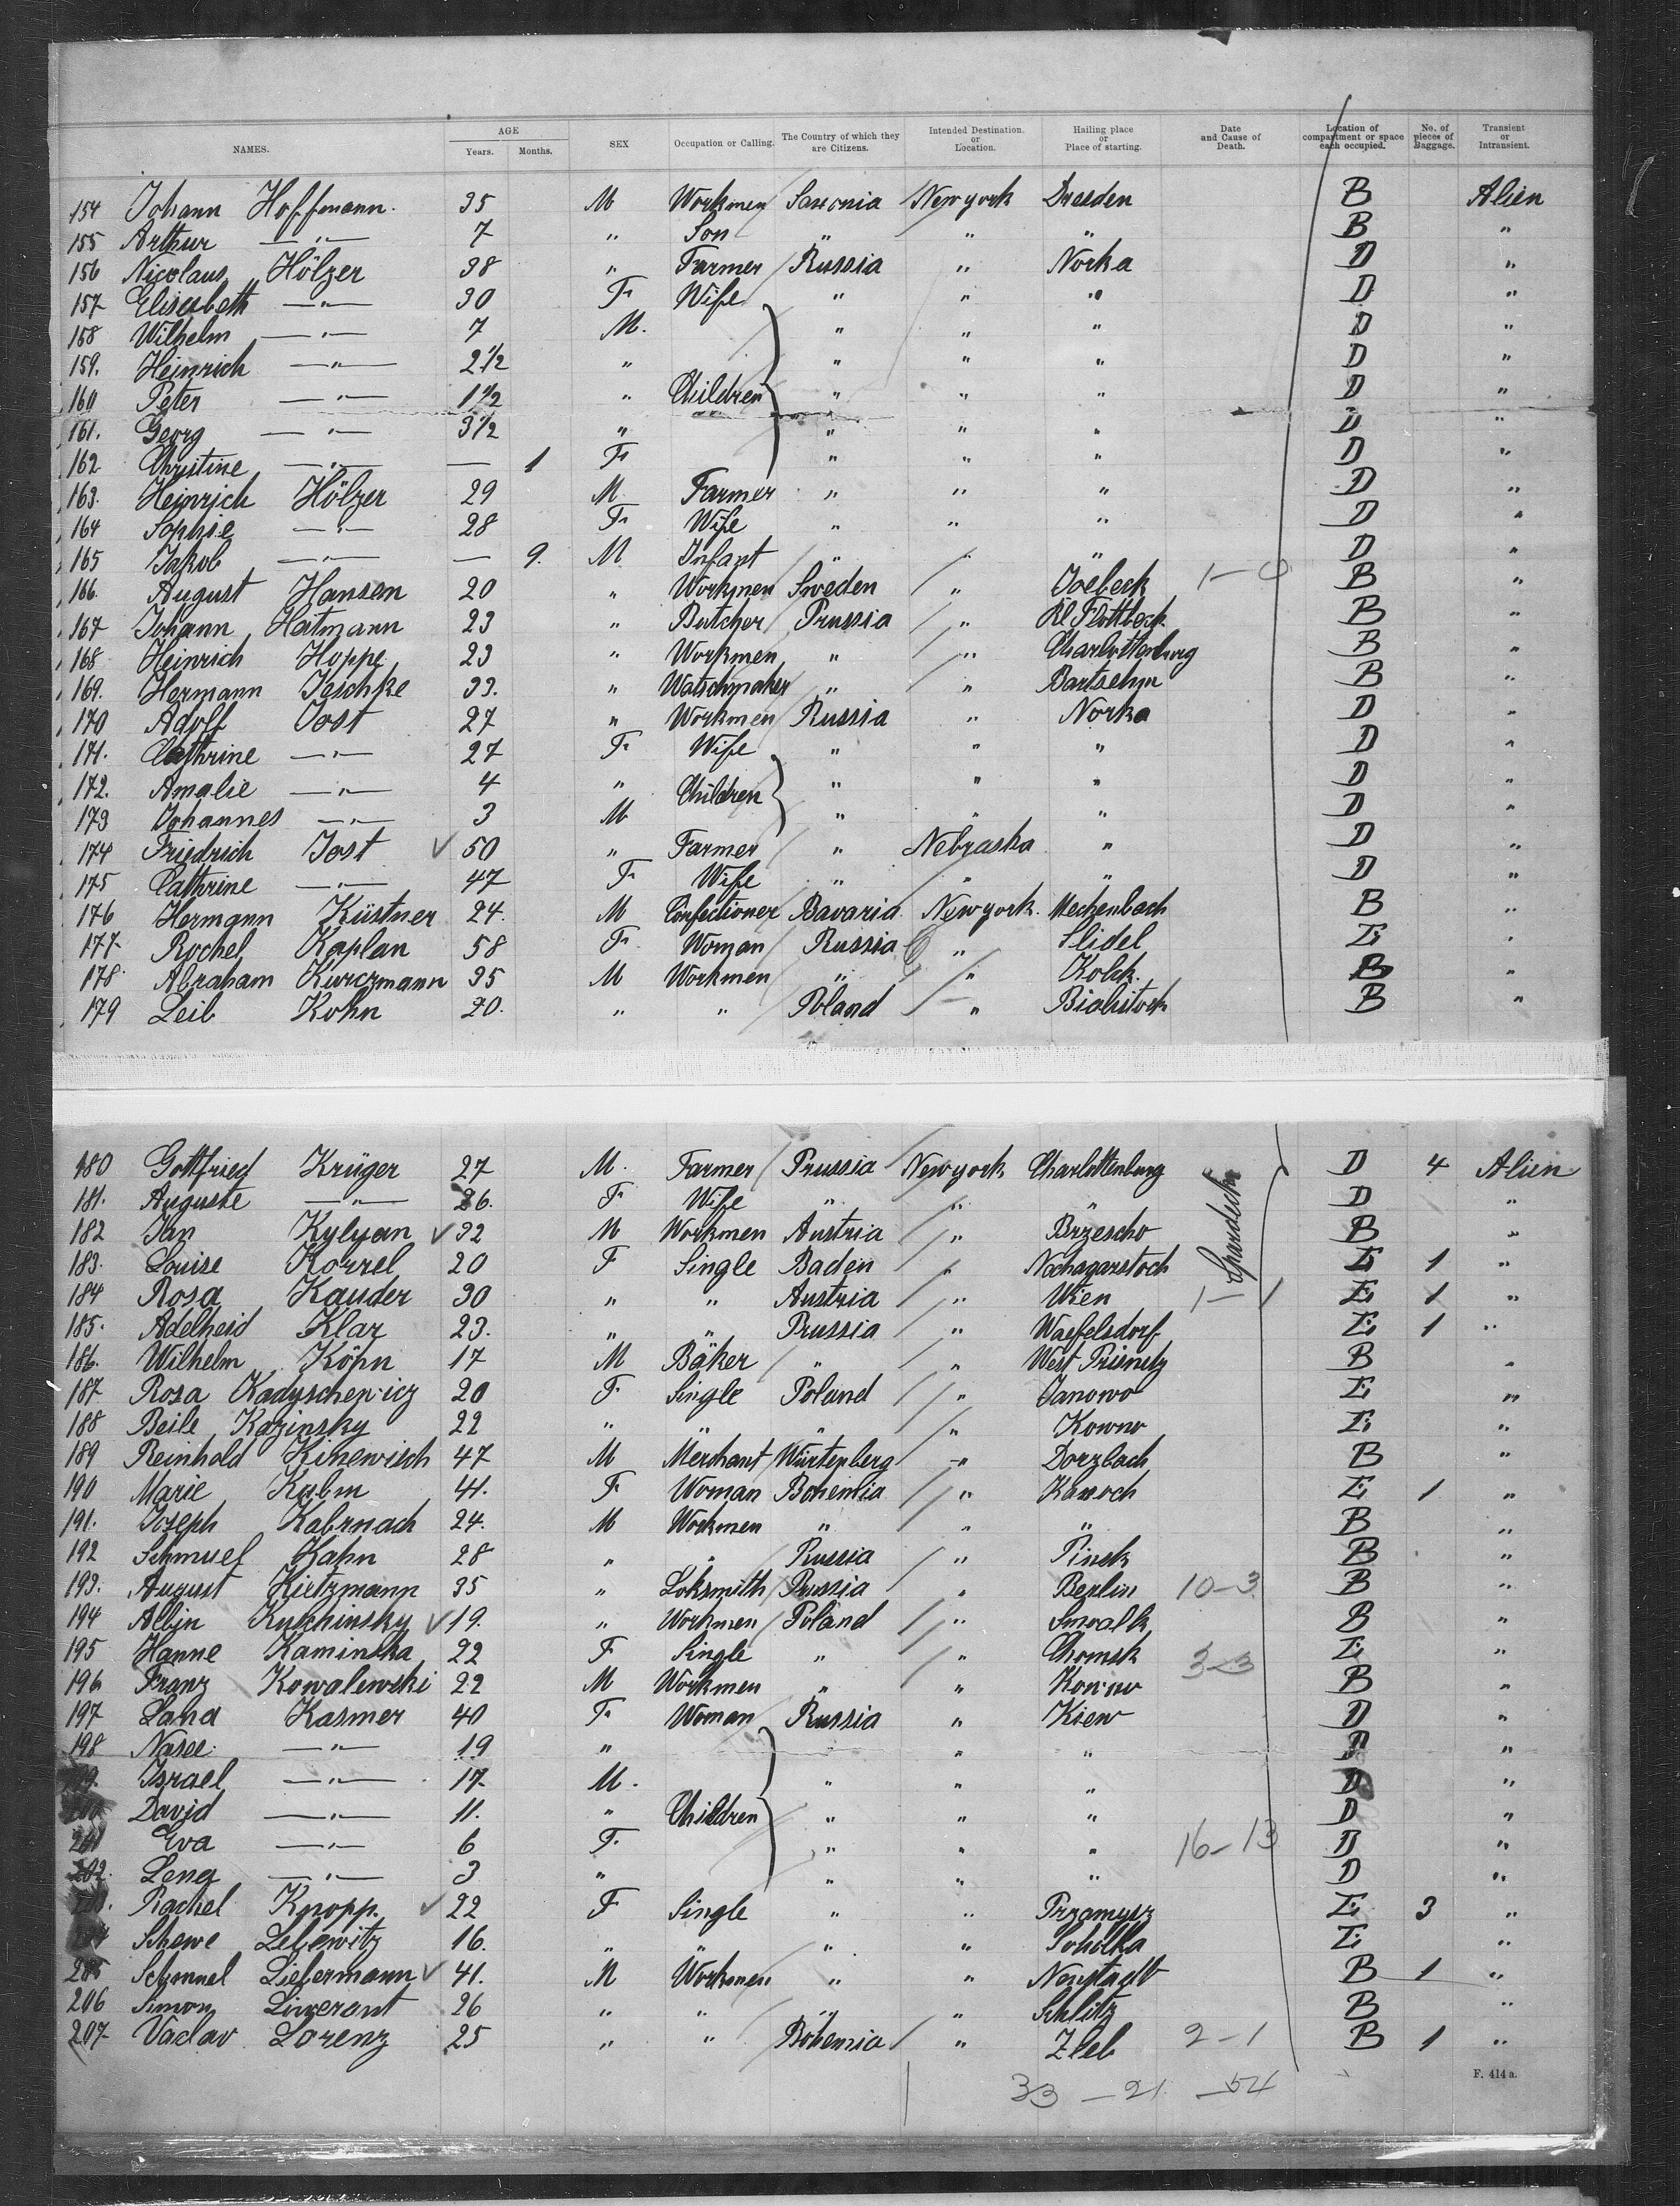 NAMES. AGE Years. Months. SEX Occupation or Calling. The Country of which they are Citizens. Intended Destination. or Location. Hailing place or Place of starting. Date and Cause of Death. Location of compartment or space each occupied. No. of pieces of Baggage. Transient or Intransient.
154 Johann Hoffmann. 35 M Workmen Saxonia Newyork Dresden B Alien
155 Arthur —"— 7 " Son " " " B "
156 Nicolaus Hölzer 38 " Farmer Russia " Norka D "
157 Elisabeth —"— 30 F Wife " " " D "
158 Wilhelm —"— 7 M. " " " D "
159. Heinrich —"— 2½ " " " " D "
160 Peter —"— 1½ " Children " " " D "
161. Georg —"— 3½ " " " " D "
162 Christine —"— — 1 F " " " D "
163. Heinrich Hölzer 29 M Farmer " " " D "
164 Sophie —"— 28 F Wife " " " D "
165 Jakob —"— — 9. M Infant " " " D "
166. August Hansen 20 " Workmen Sweden " Joebeck 1-0 B "
167 Johann Hatmann 23 " Butcher Prussia " Kl Flottbeck B "
168 Heinrich Hoppe 23 " Workmen " " Charlottenburg B "
169. Hermann Jeschke 33. " Watschmaker " " Bartschin B "
170 Adolf Jost 27 " Workmen Russia " Norka D "
171. Cathrine —"— 27 F Wife " " " D "
172. Amalie —"— 4 " Children " " " D "
173 Johannes —"— 3 M " " " D "
174 Friedrich Jost 50 " Farmer " Nebraska " D "
175 Cathrine —"— 47 F Wife " " " D "
176 Hermann Küstner 24. M Confectioner Bavaria Newyork. Meckenbach B "
177 Rochel Kaplan 58 F Woman Russia " Slidel E "
178 Abraham Kurczmann 35 M Workmen " " Kolck B "
179 Leib Kohn 20. " " Poland " Bialistock B "
180 Gottfried Krüger 27 M. Farmer Prussia Newyork Charlottenburg D 4 Alien
181. Auguste —"— 26. F Wife " " " D "
182 Jan Kylyan 32 M Workmen Austria " Brzescho B "
183. Louise Korrel 20 F Single Baden " Nochagarstoch E 1 "
184 Rosa Kauder 30 " " Austria " Wien 1-1 E 1 "
185. Adelheid Klar 23. " " Prussia " Waefelsdorf E 1 "
186. Wilhelm Köhn 17 M Bäker " " West Prisnitz B "
187 Rosa Kadyschewicz 20 F Single Poland " Janowo E "
188 Beile Kazinsky 22 " " " " Kowno E "
189 Reinhold Kinewisch 47 M Merchant Würtenberg " Dorzbach B "
190 Marie Kulm 41. F Woman Bohemia " Kasroch E 1 "
191. Joseph Kabrnach 24. M Workmen " " " B "
192 Schmuel Kahn 28 " " Russia " Pinsk B "
193. August Kietzmann 35 " Loksmith Prussia " Berlin 10-3 B "
194 Albin Kuschinsky 19. " Workmen Poland " Suwalk B "
195 Hanne Kaminska 22 F Single " " Chomsk 3-3 E "
196 Franz Kowalewski 22 M Workmen " " Kowno B "
197 Lana Kasmer 40 F Woman Russia " Kiew D "
198 Nasee —"— 19 " " " D "
Israel —"— 17. M. " " " D "
David —"— 11. " Children " " " D "
201 Eva —"— 6 F " " " 16-13 D "
202. Lena —"— 3 " " " " D "
Rachel Knopp. 22 F Single " " Przamysz E 3 "
Schewe Lebewitz 16. " " " " Soholka E "
205 Schmuel Liebermann 41. M Workmen " " Neustadt B 1 "
206 Simon Liwerant 26 " " " " Schlitz B "
207 Vaclav Lorenz 25 " " Bohemia " Zleb 2-1 B 1 "
33 - 21 - 54
F. 414 a.